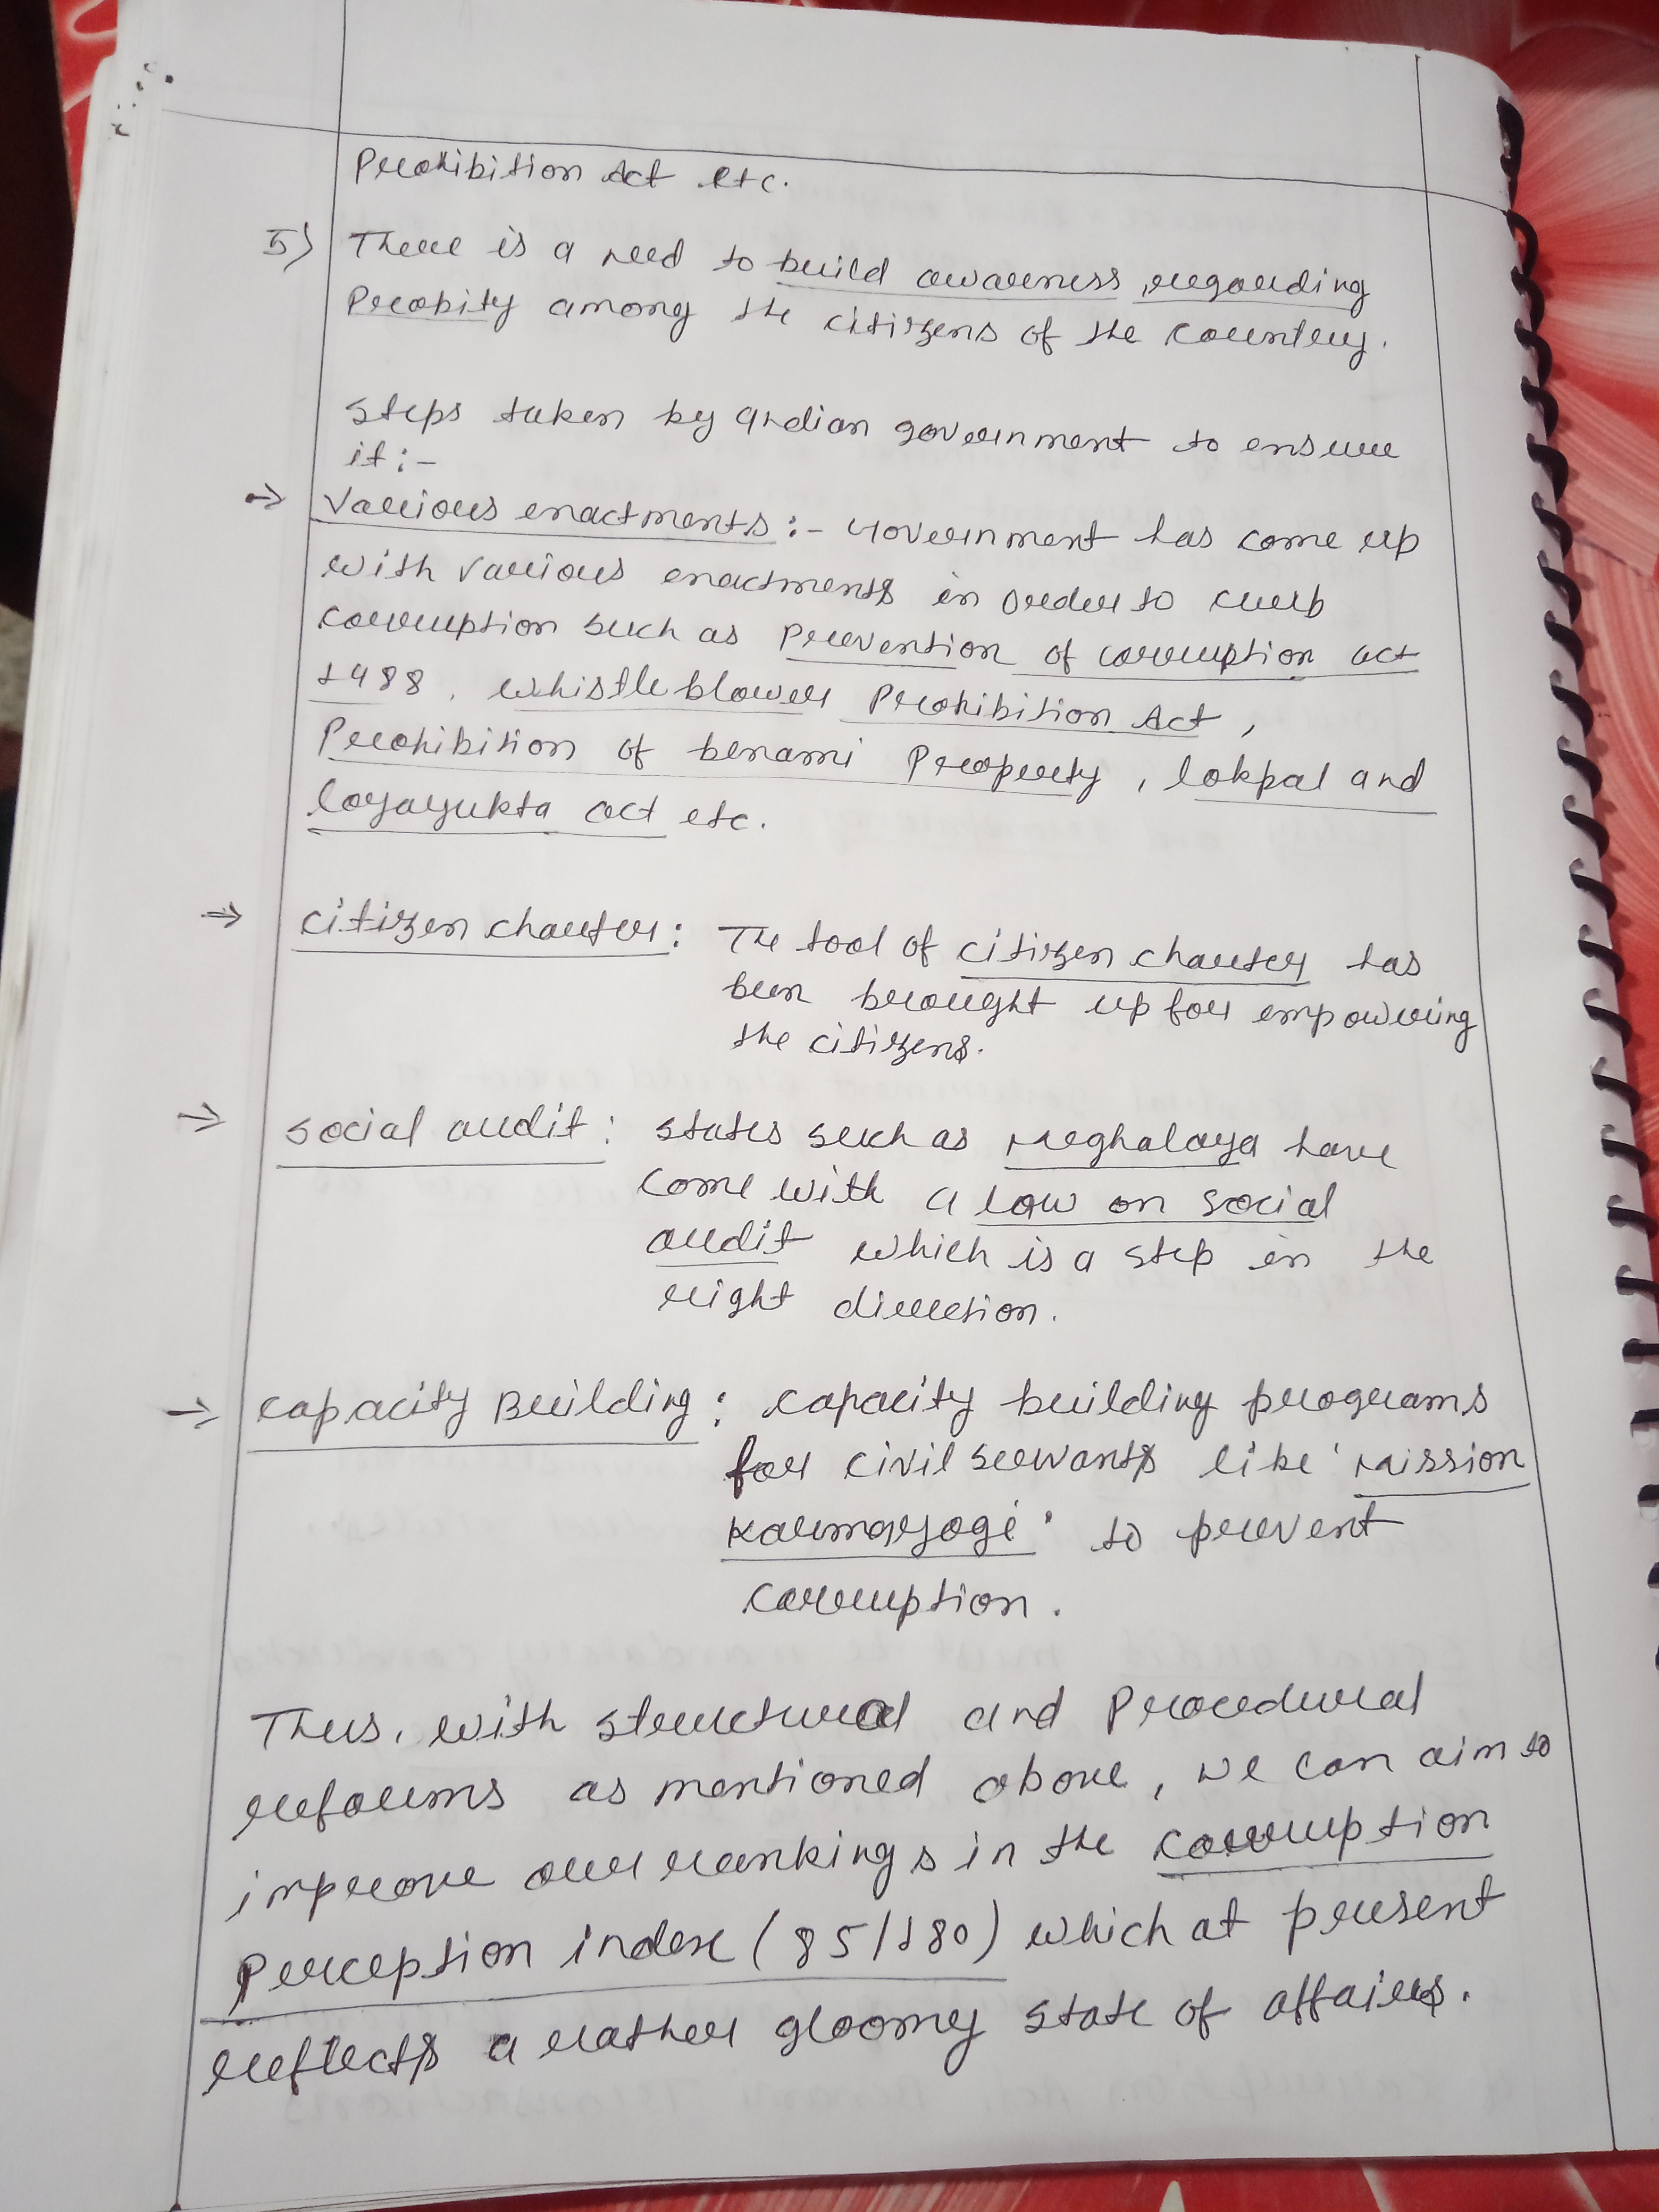 Prohibition Act etc.
5) There is a need to build awareness regarding
Probity among the citizens of the country.
Steps taken by Indian government to ensure
it :-
→ Various enactments :- Government has come up
with various enactments in order to curb
corruption such as Prevention of corruption act
1988, whistleblower Prohibition Act,
Prohibition of benami Property, lokpal and
loyayukta act etc.
→ Citizen charter : The tool of citizen charter has
been brought up for empowering
the citizens.
→ Social audit : states such as Meghalaya have
come with a law on social
audit which is a step in the
right direction.
→ Capacity Building : Capacity building programs
for civil servants like 'Mission
Karmayogi' to prevent
corruption.
Thus, with structural and Procedural
reforms as mentioned above, we can aim to
improve our rankings in the corruption
Perception index (85/180) which at present
reflects a rather gloomy state of affairs.